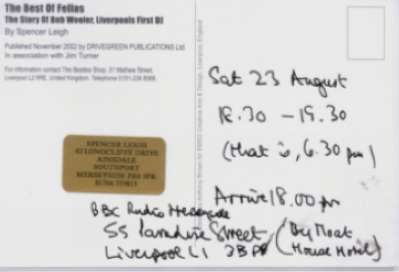 The Best Of Fellas
The Story Of Bob Wooler, Liverpools First DJ
By Spencer Leigh
Published November 2002 by DRIVEGREEN PUBLICATIONS Ltd
In association with Jim Turner
For information contact The Beatles Shop, 31 Mathew Street,
Liverpool L2 6RE, United Kingdom. Telephone 0151-236 8066.
SPENCER LEIGH
AINSDALE
SOUTHPORT
MERSEYSIDE PR8
Sat 23 August
18.30 - 19.30
(that is, 6.30 pm)
Arrive 18.00 pm
BBC Radio Merseyside
55 Paradise Street (By Moat
House Hotel)
Liverpool L1 3BP